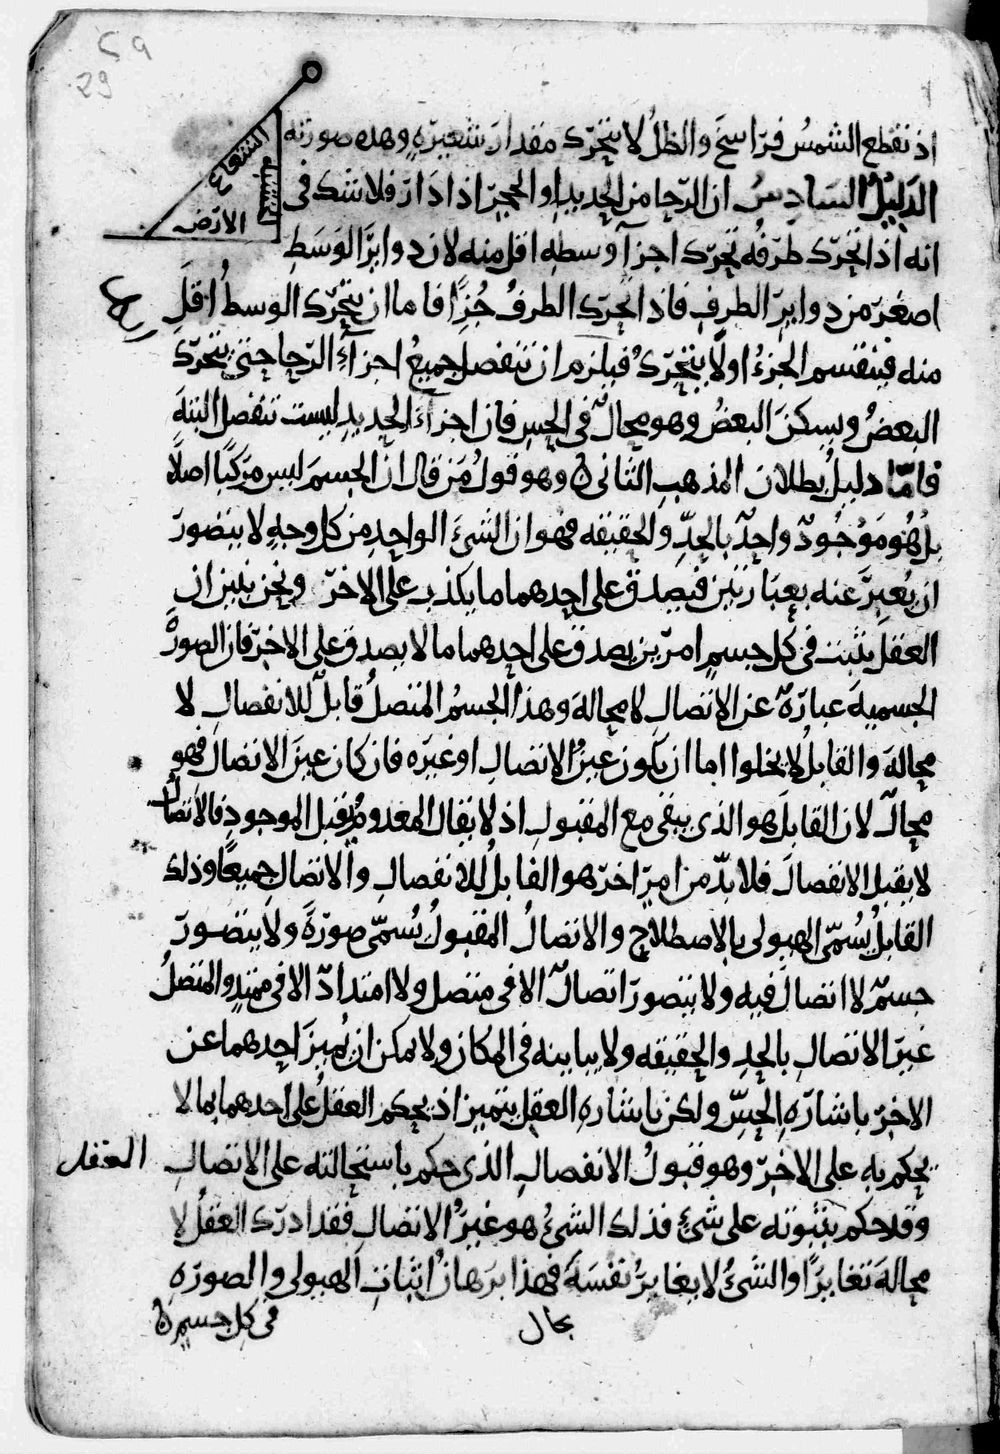 ٢٩
29
اذ تقطع الشمسُ فراسخَ والظلُ لا يتحرّك مقدارَ شعيرةٍ وهذه صورته
الشعاع
الارض
الدليلُ السادسُ ان الرّحا من الحديد او الحجر اذا دارَ فلا شك فى
انه اذا تحرّك طرَفُه تحرّك اجزآ وسطه اقل منه لان دوايرَ الوَسَطِ
اصغرَ من دوايرِ الطرفِ فاذا تحرّك الطرفُ جُزءًا فاما ان يتحرّك الوسطُ اقلَ
منه فينقسم الجزءُ او لا يتحرّكُ فيلزم ان تنفصل جميعُ اجزآءِ الرّحا حتى يتحرّك
البعضُ ويسكنَ البعضُ وهو محالٌ فى الحِسِ فان اجزآءَ الحديدِ ليست تنفصل البتةَ
فامّا دليلُ بطلان المذهبِ الثانى وهو قولُ مَن قال ان الجسمَ ليس مركبًا اصلًا
بل هُو مَوْجُودٌ واحدٌ بالحدِّ والحقيقه فهو ان الشىَ الواحدِ من كل وجهٍ لا يتصورَ
ان يُعبرَّ عنه بعبارتين فيصدق على احدهما ما يكذب على الاخرَ ونحن نبين ان
العقل يثبت فى كل جسمٍ امرَين يصدق على احدهما ما لا يصدق على الاخرَ فان الصورةَ
الجسميه عبارةٌ عن الاتصال لا محالة وهذا الجسمُ المتصلُ قابلٌ للانفصالِ لا
محالة والقابلُ لا يخلوا اما ان يكون عينُ الاتصالِ او غيرَه فان كان عينَ الاتصال فهو
محالٌ لان القابلَ هو الذى يبقى مع المقبولِ اذ لا يقال المعدومُ يقبل الموجودِ فالاتصال
لا يقبل الانفصالَ فلا بدّ من امرٍ اخرَ هو القابلُ للانفصالِ والاتصال جميعًا وذلك
القابلُ يُسمّى الهيولى بالاصطلاحِ والاتصالُ المقبولُ يُسمّى صورةً ولا يتصورَ
جسمٌ لا اتصالَ فيه ولا يتصورَ اتصالٌ الا فى متصل ولا امتدادٌ الا فى ممتدٍ والمتصلُ
غيرَ الاتصالِ بالحدِ والحقيقه ولا يباينه فى المكان ولا يمكن ان يُميزَ احدهما عن
الاخرِ باشارةِ الحِسِّ ولكن باشارهِ العقل يتميز اذ يحكم العقلُ على احدهما بما لا
يحكم به على الاخرِ وهو قبولُ الانفصالِ الذى حكم باستحالته على الاتصالِ العقل
وقد حكم بثبوته على شئٍ فذلك الشئُ هو غيرُ الاتصال فقد ادرَك العقلُ لا
محالةَ تغايرًا والشئُ لا يغايرُ نفْسَهَ فهذا برَهانُ اثباتِ الهيولى والصورَه
فى كل جسمٍ
بحال